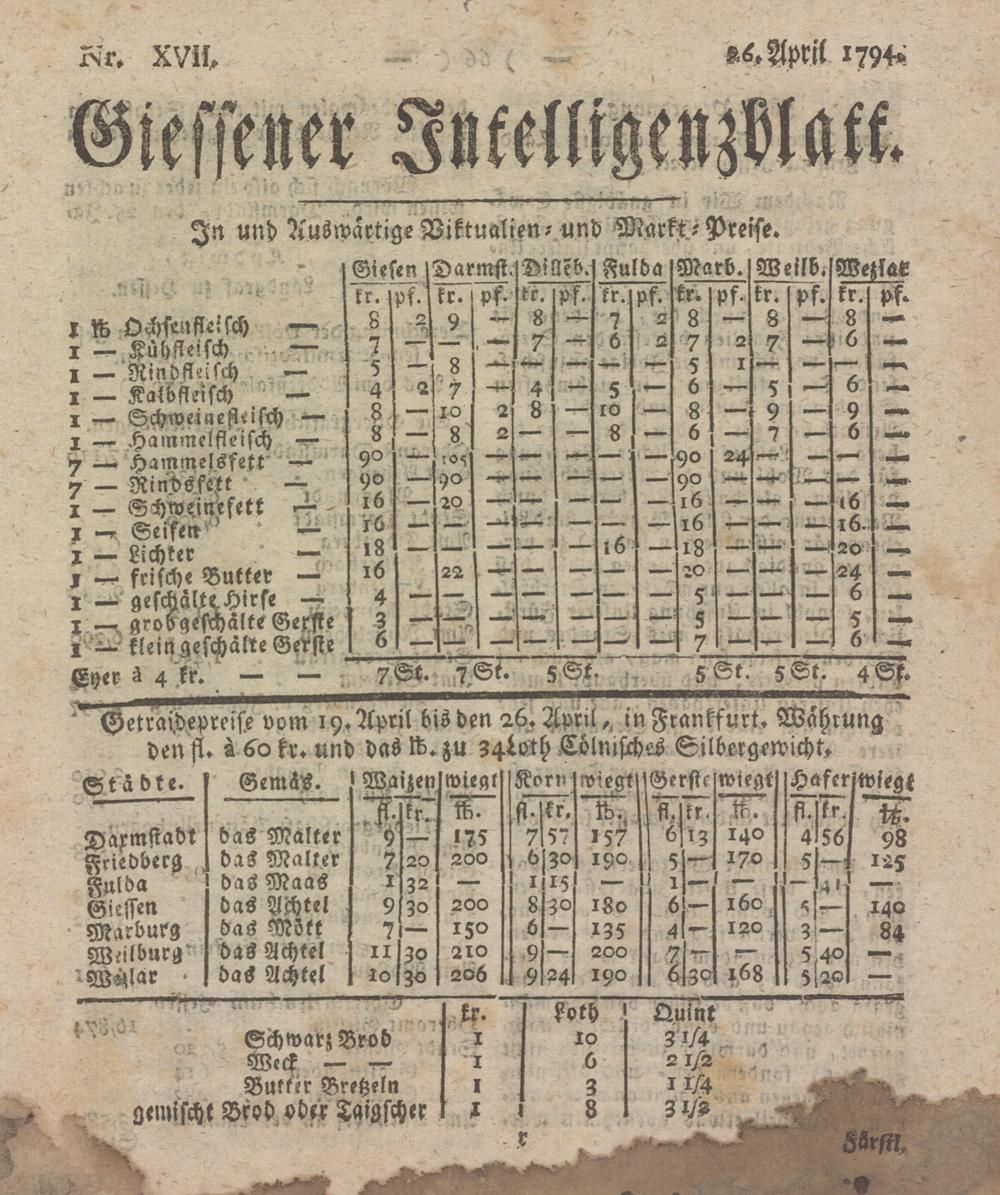 Nr. XVII. 26. April 1794.
Giessener Intelligenzblatt.
In und Auswärtige Viktualien- und Markt-Preise.
Giesen | Darmst. | Dilleb. | Fulda | Marb. | Weilb. | Wezlar
kr. | pf. | kr. | pf. | kr. | pf. | kr. | pf. | kr. | pf. | kr. | pf. | kr. | pf.
1 ℔ Ochsenfleisch — 8 2 9 — 8 — 7 2 8 — 8 — 8 —
1 — Kühfleisch — 7 — — — 7 — 6 2 7 2 7 — 6 —
1 — Rindfleisch — 5 — 8 — — — — — 5 1 — — — —
1 — Kalbfleisch — 4 2 7 — 4 — 5 — 6 — 5 — 6 —
1 — Schweinefleisch — 8 — 10 2 8 — 10 — 8 — 9 — 9 —
1 — Hammelfleisch — 8 — 8 2 — — 8 — 6 — 7 — 6 —
7 — Hammelsfett — 90 — 105 — — — — — 90 24 — — — —
7 — Rindsfett — 90 — 90 — — — — — 90 — — — — —
1 — Schweinefett — 16 — 20 — — — — — 16 — — — 16 —
1 — Seifen — 16 — — — — — — — 16 — — — 16 —
1 — Lichter — 18 — — — — — 16 — 18 — — — 20 —
1 — frische Butter — 16 — 22 — — — — — 20 — — — 24 —
1 — geschälte Hirse — 4 — — — — — — — 5 — — — 6 —
1 — grobgeschälte Gerste 3 — — — — — — — 5 — — — 6 —
1 — kleingeschälte Gerste 6 — — — — — — — 7 — — — 6 —
Eyer à 4 kr. — — 7 St. 7 St. 5 St. 5 St. 5 St. 4 St.
Getraidepreise vom 19. April bis den 26. April, in Frankfurt. Währung
den fl. à 60 kr. und das ℔. zu 34 Loth Cölnisches Silbergewicht.
Städte. | Gemäs. | Waizen | wiegt | Korn | wiegt | Gerste | wiegt | Hafer | wiegt
fl. | kr. | ℔. | fl. | kr. | ℔. | fl. | kr. | ℔. | fl. | kr. | ℔.
Darmstadt | das Malter | 9 | — | 175 | 7 | 57 | 157 | 6 | 13 | 140 | 4 | 56 | 98
Friedberg | das Malter | 7 | 20 | 200 | 6 | 30 | 190 | 5 | — | 170 | 5 | — | 125
Fulda | das Maas | 1 | 32 | — | 1 | 15 | — | 1 | — | — | — | 41 | —
Giessen | das Achtel | 9 | 30 | 200 | 8 | 30 | 180 | 6 | — | 160 | 5 | — | 140
Marburg | das Mött | 7 | — | 150 | 6 | — | 135 | 4 | — | 120 | 3 | — | 84
Weilburg | das Achtel | 11 | 30 | 210 | 9 | — | 200 | 7 | — | — | 5 | 40 | —
Wezlar | das Achtel | 10 | 30 | 206 | 9 | 24 | 190 | 6 | 30 | 168 | 5 | 20 | —
kr. | Loth | Quint
Schwarz Brod | 1 | 10 | 3 1/4
Weck — — | 1 | 6 | 2 1/2
Butter Bretzeln | 1 | 3 | 1 1/4
gemischt Brod oder Taigscher | 1 | 8 | 3 1/2
r Fürstl.